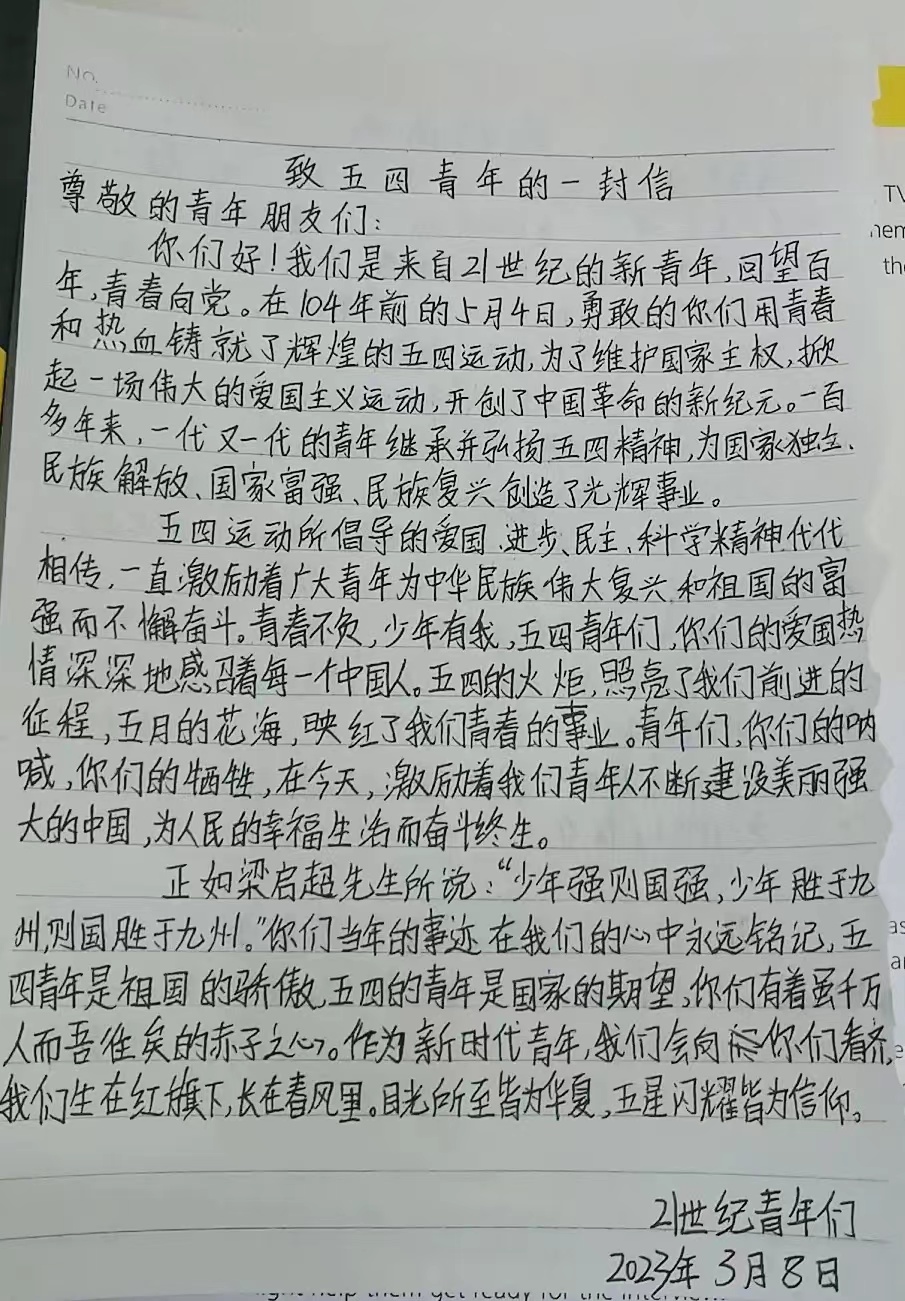 No.
Date
致五四青年的一封信
尊敬的青年朋友们:
你们好!我们是来自21世纪的新青年,回望百
年,青春向党。在104年前的5月4日,勇敢的你们用青春
和热血铸就了辉煌的五四运动,为了维护国家主权,掀
起一场伟大的爱国主义运动,开创了中国革命的新纪元。一百
多年来,一代又一代的青年继承并弘扬五四精神,为国家独立、
民族解放、国家富强、民族复兴创造了光辉事业。
五四运动所倡导的爱国、进步、民主、科学精神代代
相传,一直激励着广大青年为中华民族伟大复兴和祖国的富
强而不懈奋斗。青春不负,少年有我,五四青年们,你们的爱国热
情深深地感召着每一个中国人。五四的火炬,照亮了我们前进的
征程,五月的花海,映红了我们青春的事业。青年们,你们的呐
喊,你们的牺牲,在今天,激励着我们青年人不断建设美丽强
大的中国,为人民的幸福生活而奋斗终生。
正如梁启超先生所说:“少年强则国强,少年胜于九
州,则国胜于九州。”你们当年的事迹在我们的心中永远铭记,五
四青年是祖国的骄傲,五四的青年是国家的期望,你们有着虽千万
人而吾往矣的赤子之心。作为新时代青年,我们会向你们看齐,
我们生在红旗下,长在春风里。目光所至皆为华夏,五星闪耀皆为信仰。
21世纪青年们
2023年3月8日
TV
the
as